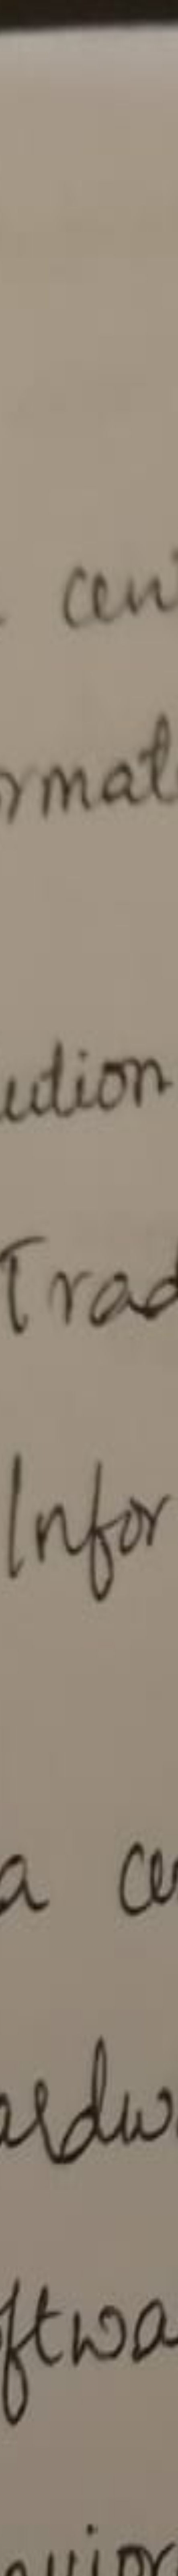 cen
rmat
ution
Trad
Infor
a ce
ardw
ftwa